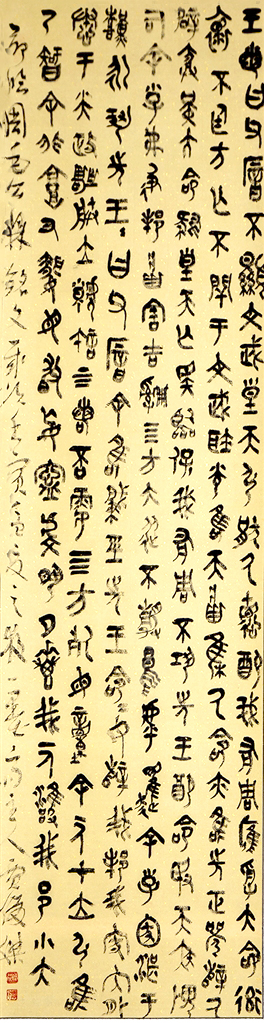 王若曰父厝不顯文武皇天弘猒氒德配我有周膺受大命率
褱不廷方亡不閈于文武耿光唯天將集氒命亦唯先正襄辥氒
辟勞堇大命肆皇天亡斁臨保我有周不巩先王配命敃天疾畏
司余小子弗彶邦將害吉四方大從不靜烏乎趯余小子圂湛于
艱永巩先王王曰父厝今余唯肇巠先王命命女辥我邦我家內外
憃于小大政屏朕立虩許上下若否雩四方死毋動余一人才立弘唯
乃智余非庸又昏女勿敢妄寧虔夙夕惠我一人雝我邦小大
節臨周毛公鼎銘文